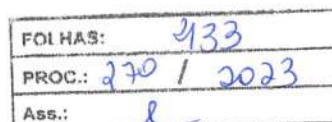 FOLHAS: 433
PROC.: 270 / 2023
Ass.: